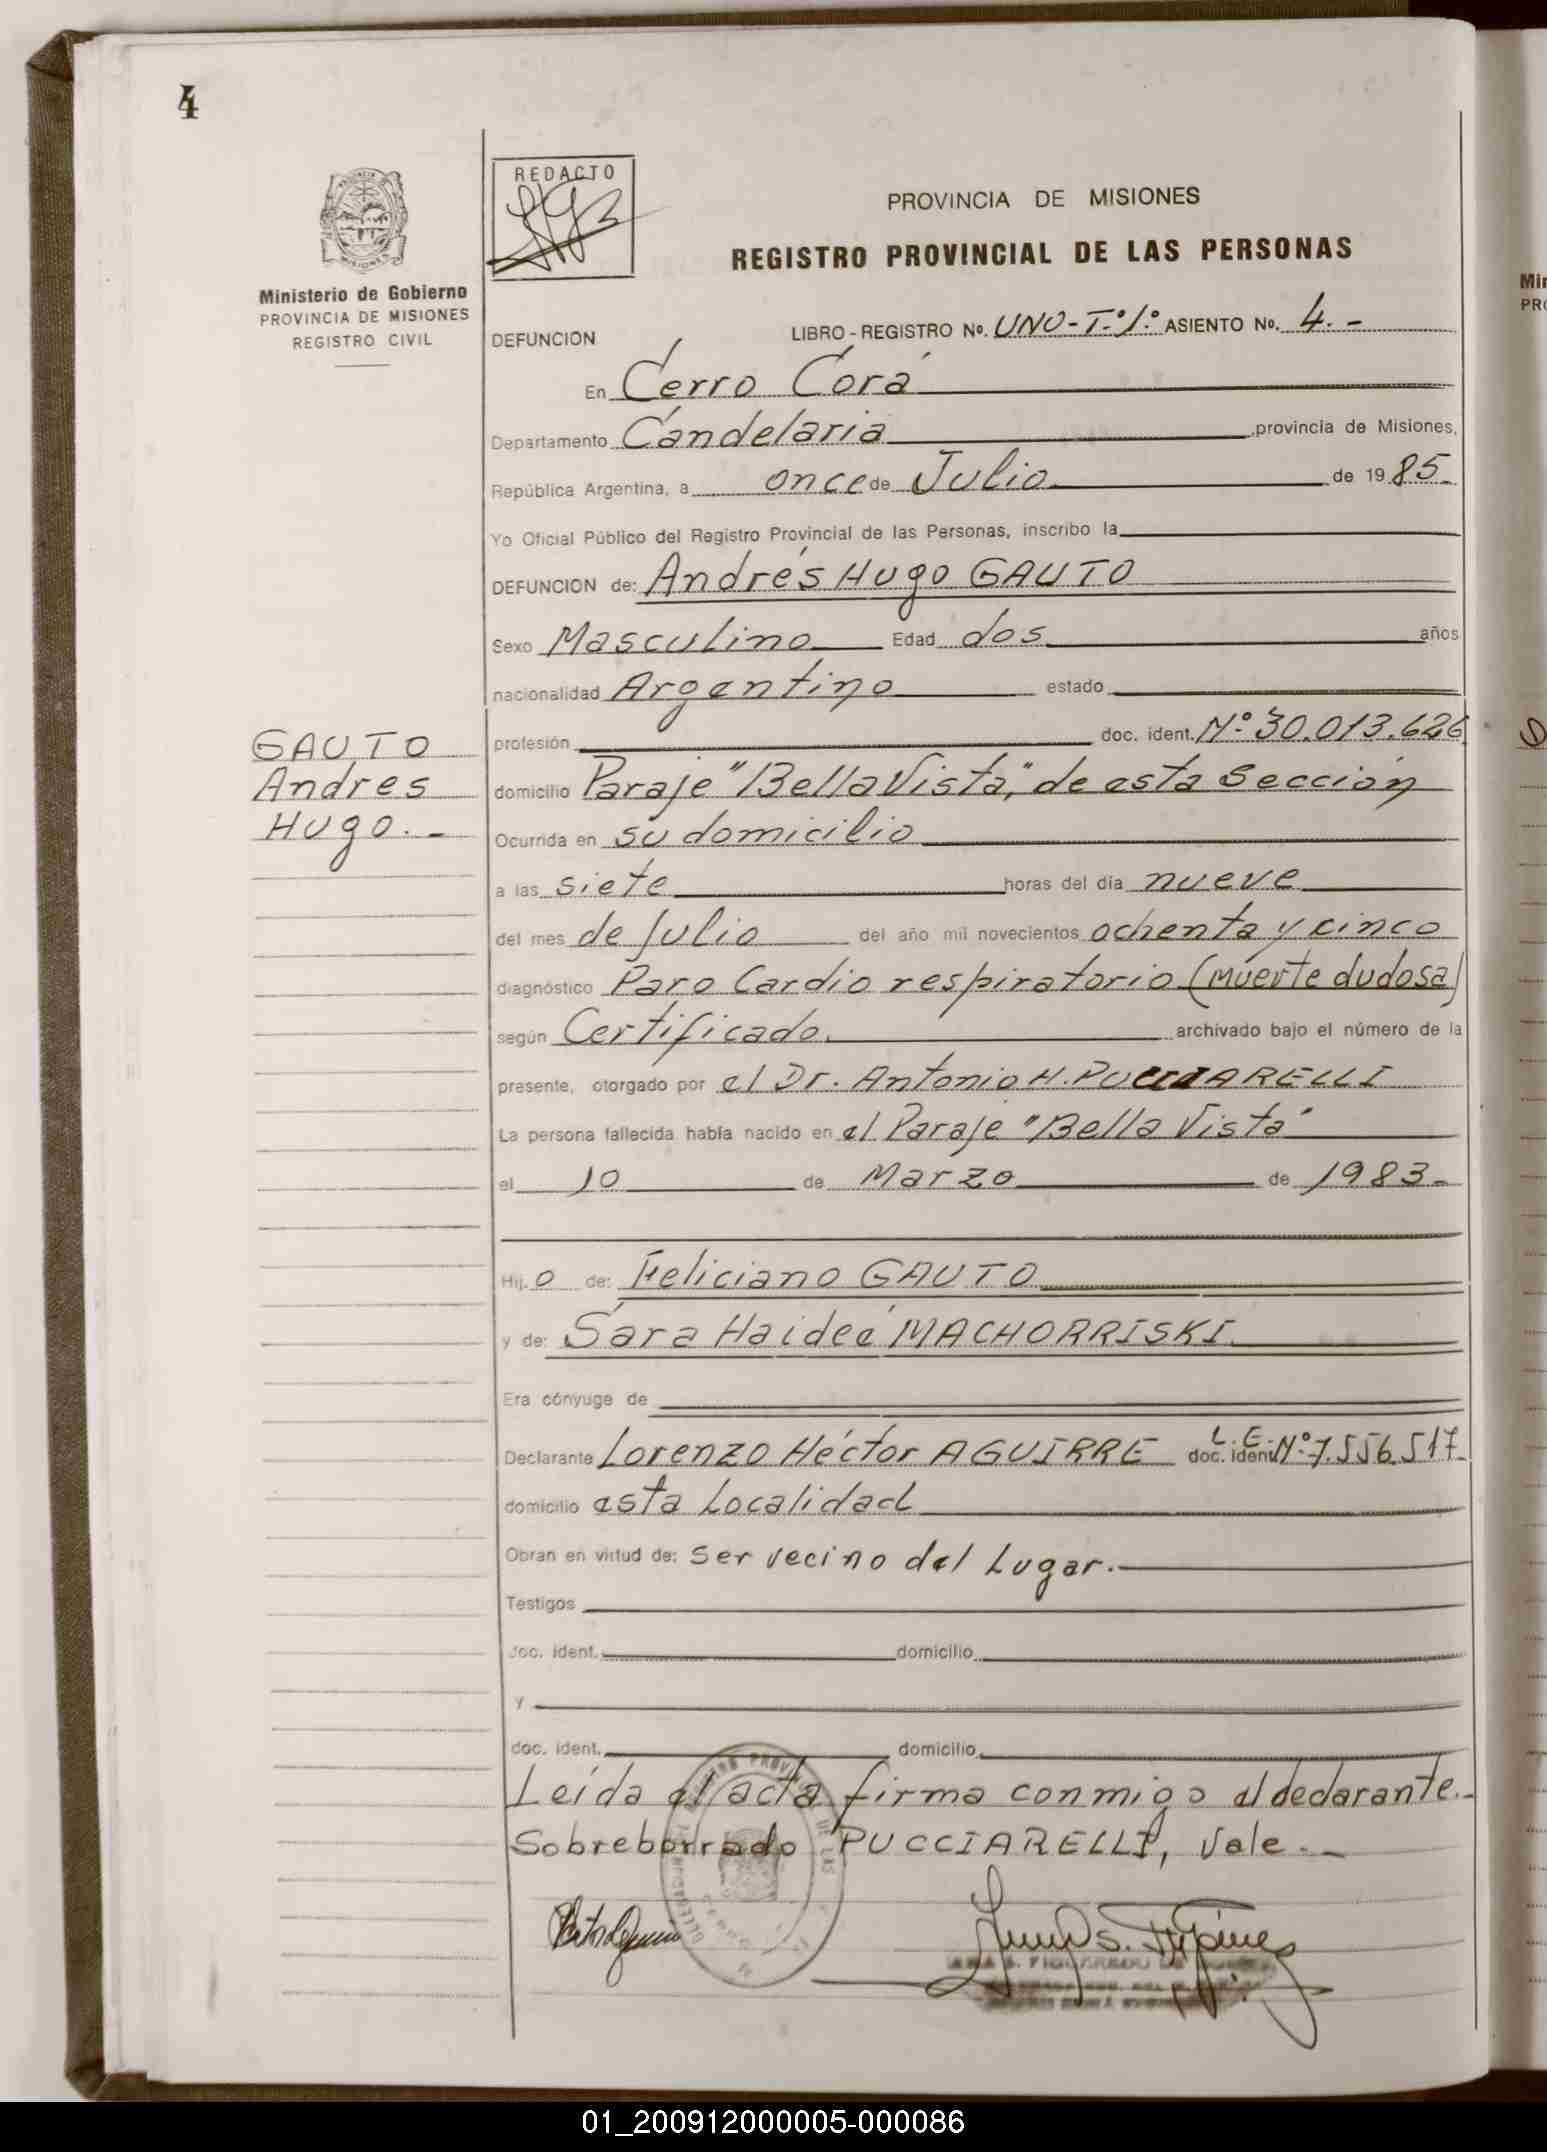 4
REDACTO
PROVINCIA DE MISIONES
REGISTRO PROVINCIAL DE LAS PERSONAS
Ministerio de Gobierno
PROVINCIA DE MISIONES
REGISTRO CIVIL
DEFUNCION LIBRO - REGISTRO No. UNO - T.º 1.º ASIENTO No. 4.-
En Cerro Corá
Departamento Candelaria provincia de Misiones,
República Argentina, a once de Julio de 1985.
Yo Oficial Público del Registro Provincial de las Personas, inscribo la
DEFUNCION de: Andrés Hugo GAUTO
Sexo Masculino Edad dos años
nacionalidad Argentino estado
GAUTO
Andres
Hugo.-
profesión doc. ident. Nº 30.013.626
domicilio Paraje "Bella Vista", de esta Sección
Ocurrida en su domicilio
a las siete horas del día nueve
del mes de Julio del año mil novecientos ochenta y cinco
diagnóstico Paro Cardio respiratorio (muerte dudosa)
según Certificado. archivado bajo el número de la
presente, otorgado por el Dr. Antonio H. PUCCIARELLI
La persona fallecida había nacido en el Paraje "Bella Vista"
el 10 de Marzo de 1983.-
Hij o de: Feliciano GAUTO
y de: Sara Haideé MACHORRISKI
Era cónyuge de
Declarante Lorenzo Héctor AGUIRRE L.E. doc. ident. Nº 7.556.517.
domicilio esta Localidad
Obran en virtud de: Ser vecino del Lugar.
Testigos
doc. ident. domicilio
y
doc. ident. domicilio
Leída el acta firma conmigo el declarante.-
Sobreborrado PUCCIARELLI, Vale.-
01_200912000005-000086